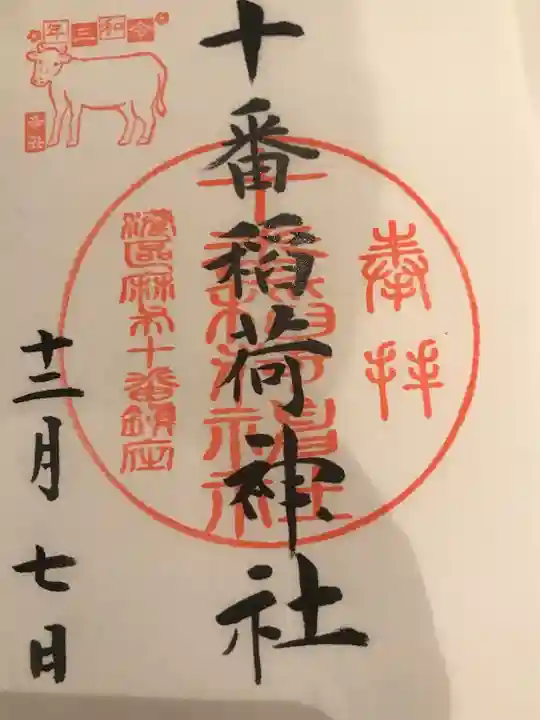 奉拝
十番稲荷神社
港区麻布十番鎮座
令和三年
十二月七日